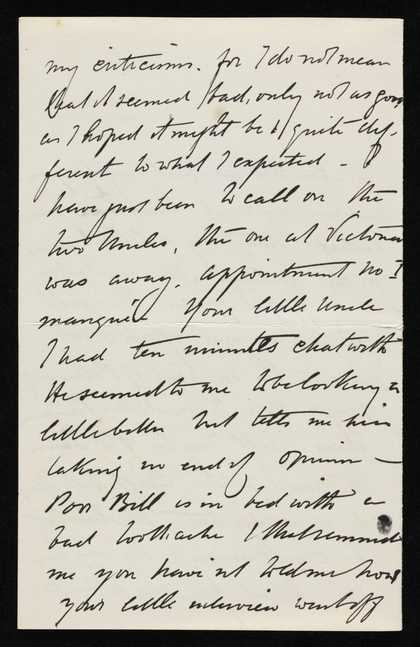 my criticisms. for I do not mean
that it seemed bad, only not as good
as I hoped it might be & quite dif-
ferent to what I expected – I
have just been to call on the
two Uncles, the one at Victoria
was away. appointment No I
manquée Your little Uncle
I had ten minutes chat with
He seemed to me to be looking a
little better but tells me he is
taking no end of opium –
Poor Bill is in bed with a
bad toothache & that reminds
me you havent told me how
your little interview went off